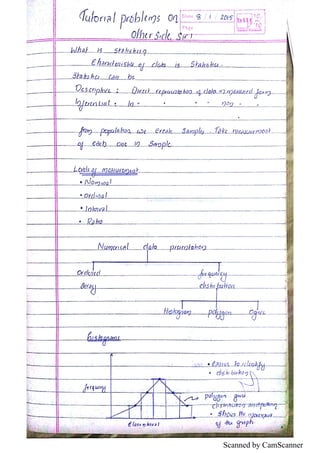 Tutorial problems on
Date 8/1/2015
Page
Other side, Sir!
What is statistics
Characteristic of data is Statistics.
Statistics can be
Descriptive : Direct representation of data in general form
Inferential : In-
from population we create Sample. Take measurement
of each one in Sample.
Levels of measurement
• Nominal
• Ordinal
• Interval
• Ratio
Numerical data presentation
Ordered frequency
array distribution
Histogram polygon Ogive
histograms
• Easy to identify
• distribution
frequency
polygon gives
• Shows the
of the graph
Class interval
Scanned by CamScanner